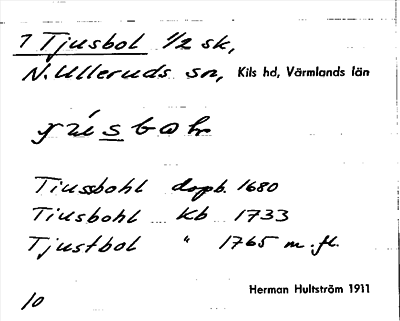 1 Tjusbol 1/2 sk,
N. Ulleruds sn, Kils hd, Värmlands län
Tiussbohl dopb. 1680
Tiusbohl Kb 1733
Tjustbol " 1765 m. fl.
Herman Hultström 1911
10